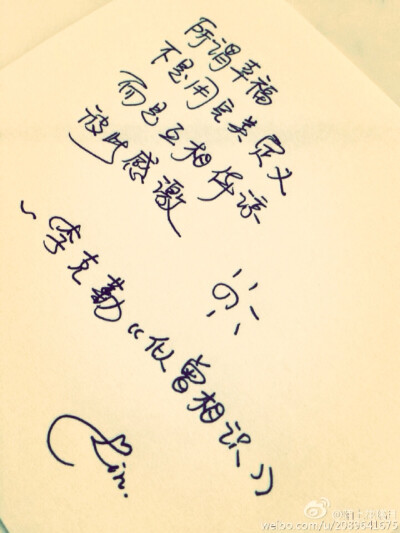 所谓幸福
不是用完美定义
而是互相体谅
彼此感激
~李克勤《似曾相识》
Rin.
weibo.com/u/2089641675